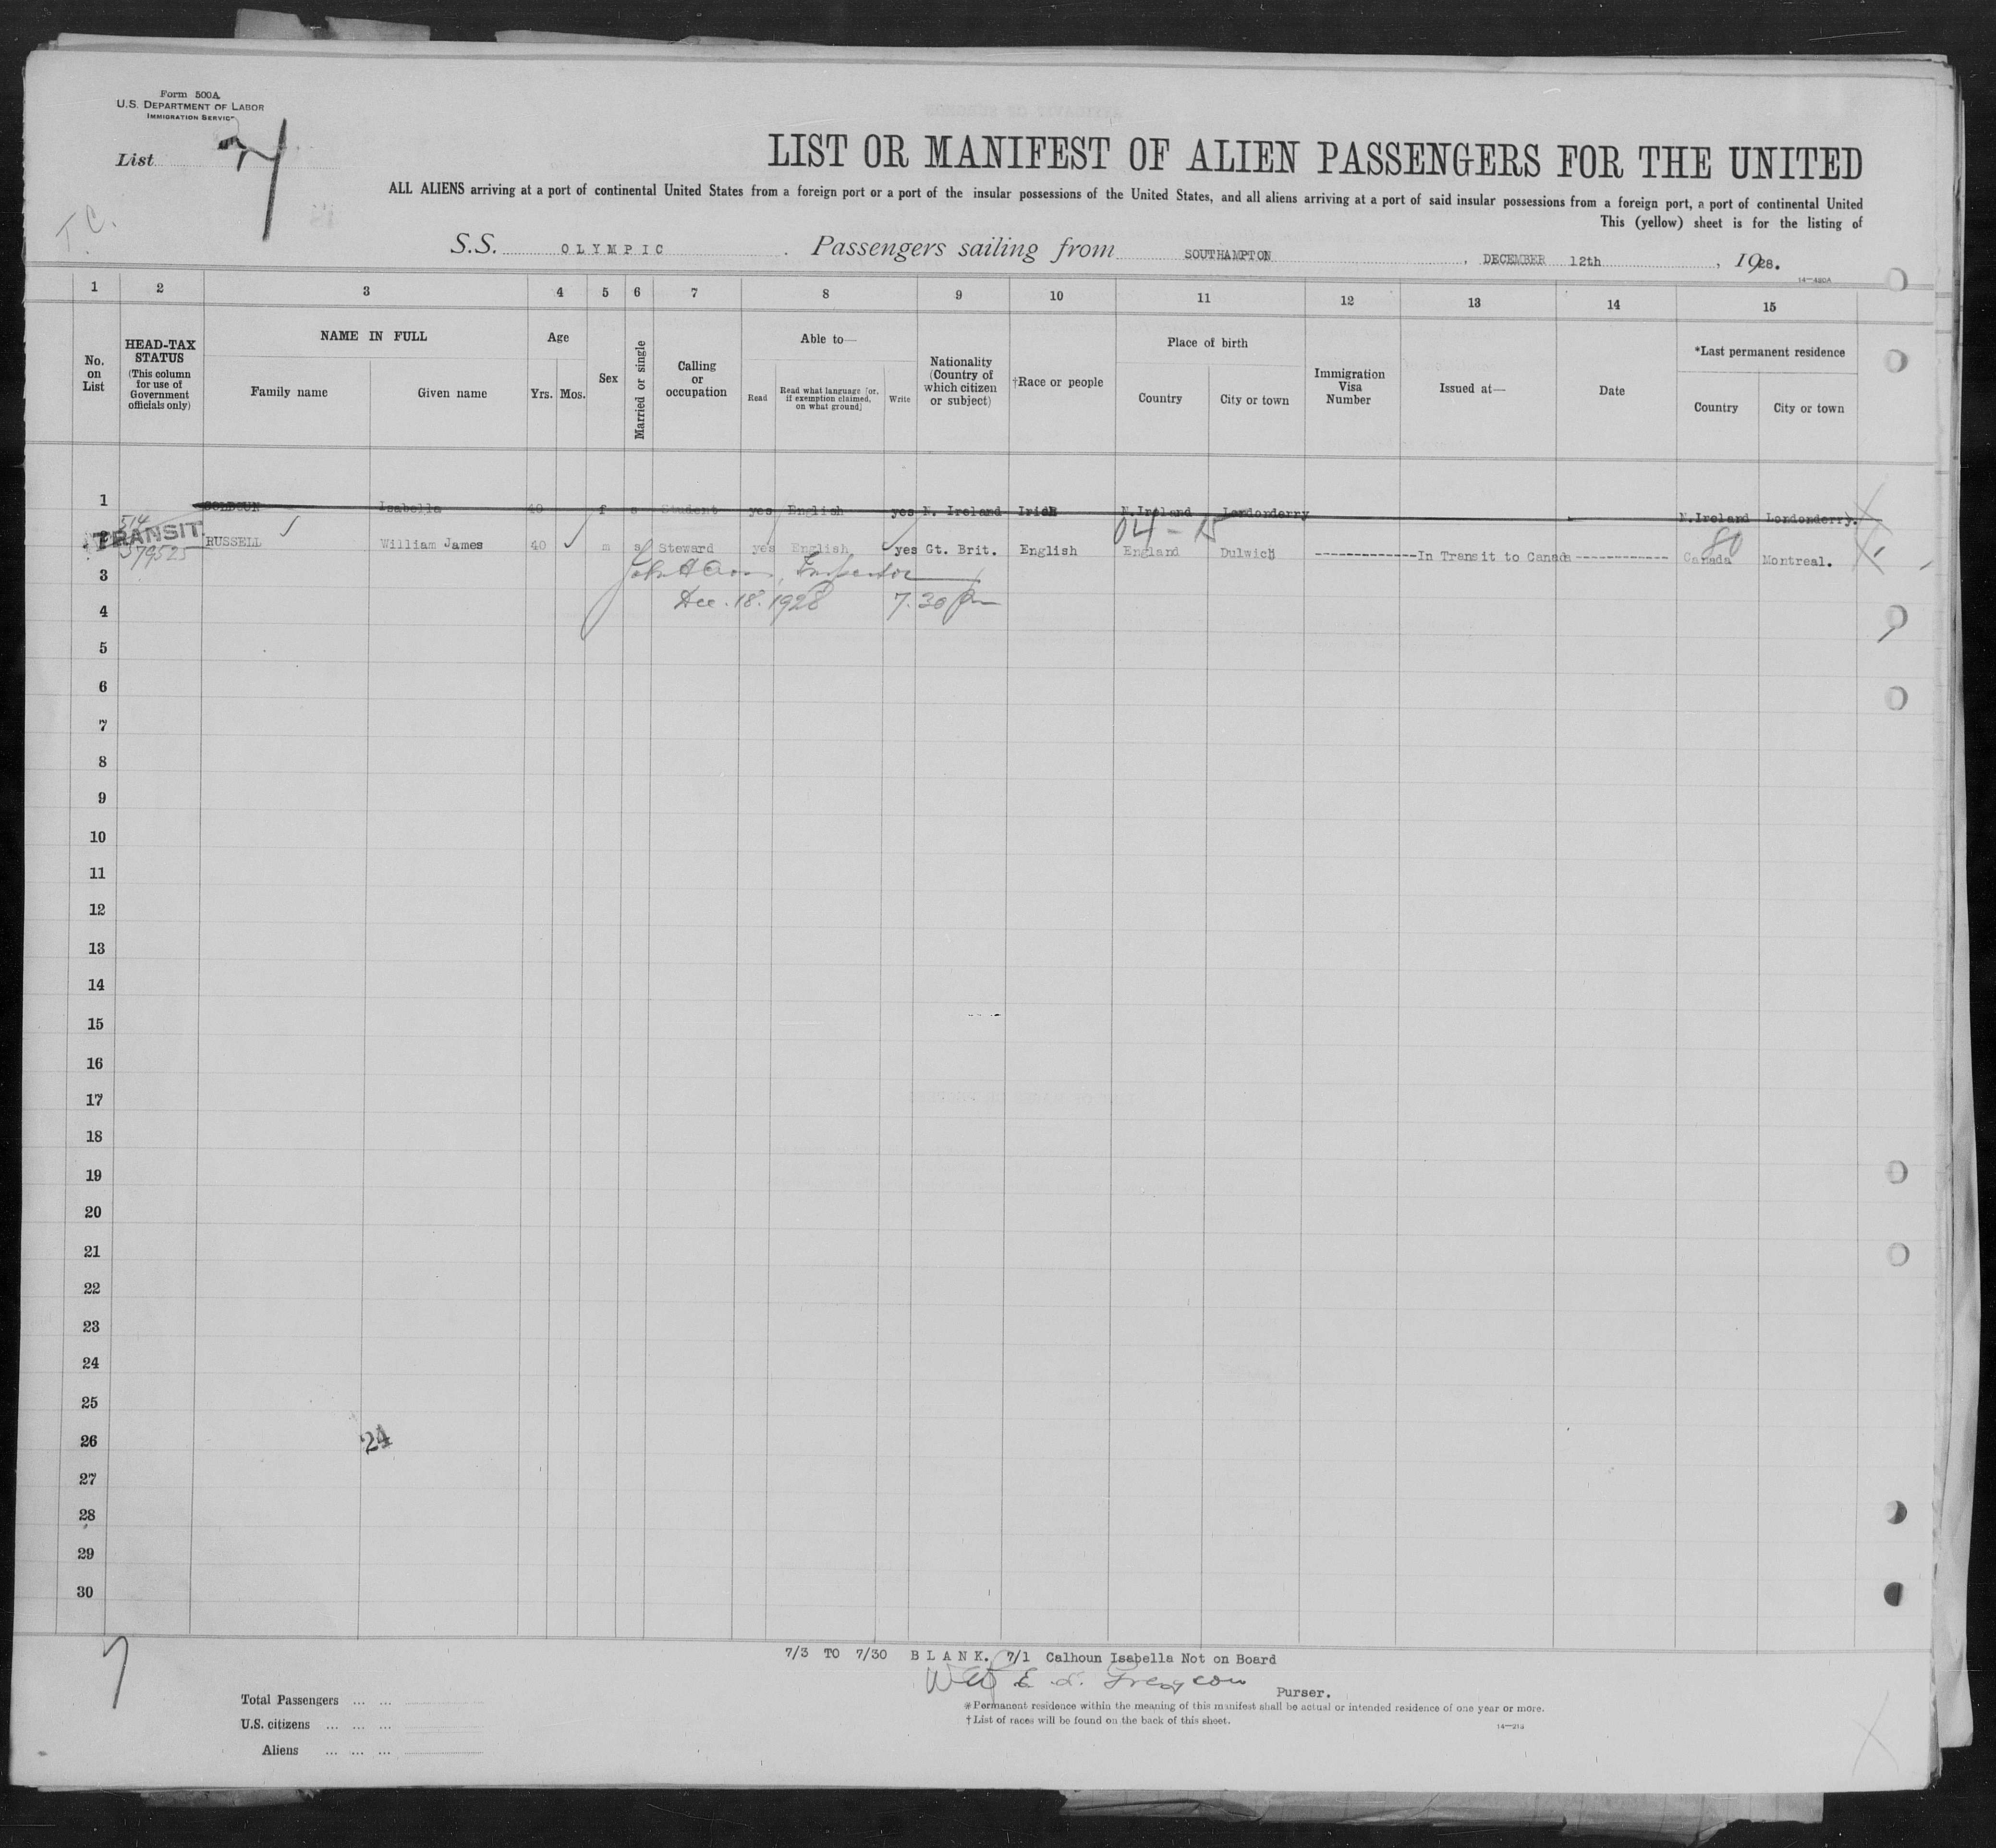 Form 500A
U.S. DEPARTMENT OF LABOR
IMMIGRATION SERVICE
List 7
T.C.
LIST OR MANIFEST OF ALIEN PASSENGERS FOR THE UNITED
ALL ALIENS arriving at a port of continental United States from a foreign port or a port of the insular possessions of the United States, and all aliens arriving at a port of said insular possessions from a foreign port, a port of continental United
This (yellow) sheet is for the listing of
S.S. OLYMPIC . Passengers sailing from SOUTHAMPTON , DECEMBER 12th , 1928.
14-480A
1 2 3 4 5 6 7 8 9 10 11 12 13 14 15
No. on List
HEAD-TAX STATUS (This column for use of Government officials only)
NAME IN FULL
Family name Given name
Age
Yrs. Mos.
Sex
Married or single
Calling or occupation
Able to—
Read
Read what language [or, if exemption claimed, on what ground]
Write
Nationality (Country of which citizen or subject)
†Race or people
Place of birth
Country City or town
Immigration Visa Number
Issued at—
Date
*Last permanent residence
Country City or town
1 Isabella 40 f s Student yes English yes N. Ireland Irish N.Ireland Londonderry N.Ireland Londonderry.
514 04-15 80
TRANSIT RUSSELL William James 40 m s Steward yes English yes Gt. Brit. English England Dulwich In Transit to Canada Canada Montreal.
579525
3 John A Inspector
4 Dec. 18. 1928 7.30 pm
5
6
7
8
9
10
11
12
13
14
15
16
17
18
19
20
21
22
23
24
25
26
24
27
28
29
30
7
7/3 TO 7/30 BLANK. 7/1 Calhoun Isabella Not on Board
Purser.
Total Passengers ... ...
U.S. citizens ... ... ...
Aliens ... ... ...
*Permanent residence within the meaning of this manifest shall be actual or intended residence of one year or more.
†List of races will be found on the back of this sheet.
14-213